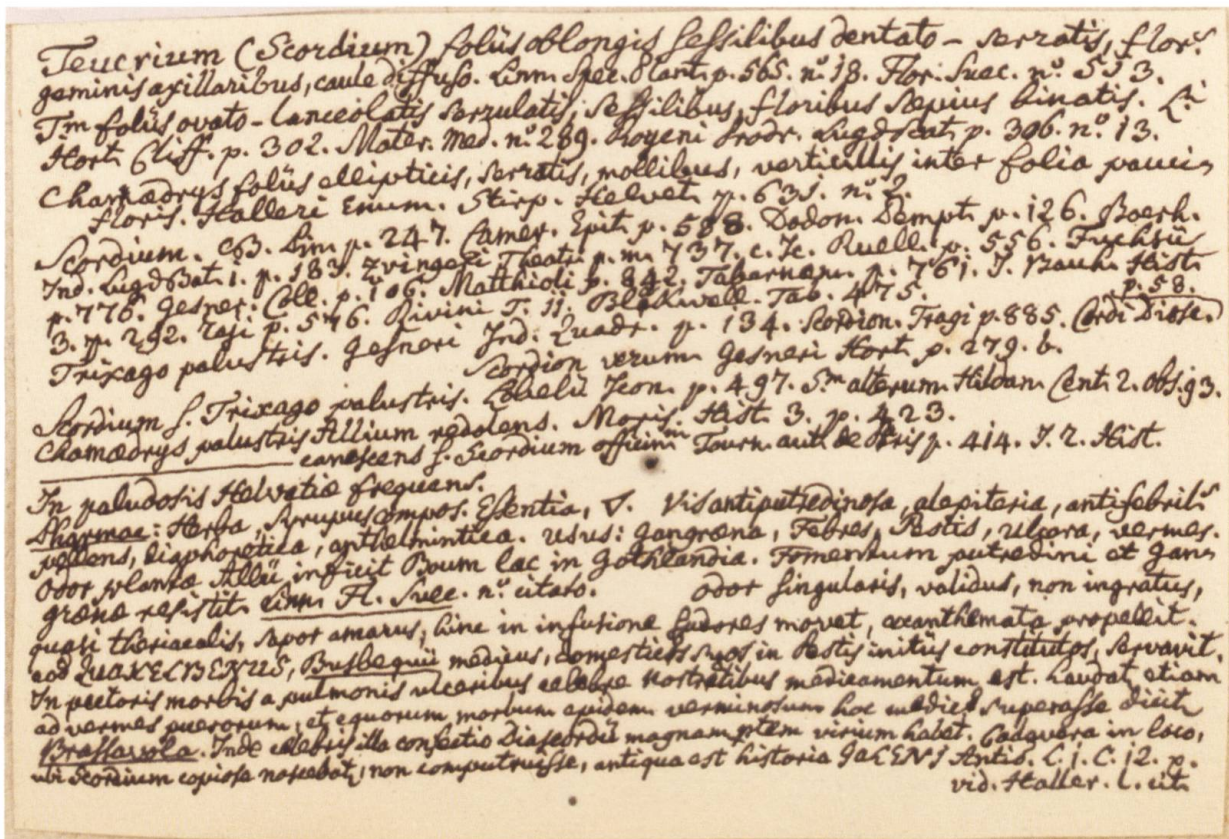 Teucrium (Scordium) foliis oblongis sessilibus dentato - serratis, flor.s
geminis axillaribus, caule diffuso. Linn. Spec. Plant. p. 565. n.o 18. Flor. Suec. n.o 513.
Tm foliis ovato - lanceolatis serrulatis, sessilibus, floribus saepius binatis. L.
Hort. Cliff. p. 302. Mater. Med. n.o 289. Royeni Prodr. Lugdbat. p. 306. n.o 13.
Chamaedrys foliis ellipticis, serratis, mollibus, verticillis inter folia pauci-
floris. Halleri Enum. Stirp. Helvet. p. 631. n.o 2.
Scordium. CB. Pin. p. 247. Camer. Epit. p. 588. Dodon. Pempt. p. 126. Boerh.
Ind. Lugdbat. 1. p. 183. Zvingeri Theatr. p. m. 737. c. Ic. Ruell. p. 556. Fuchsii
p. 776. Gesner. Coll. p. 106. Matthioli p. 842. Tabernaem. p. 761. J. Bauh. Hist.
3. p. 292. Raji p. 576. Rivini T. 11. Blakwell. Tab. 475. p. 58.
Trixago palustris. Gesneri Ind. Quadr. p. 134. Scordion. Tragi p. 885. Cordi Diosc.
Scordion verum Gesneri Hort. p. 279. b.
Scordium s. Trixago palustris. Lobelii Icon. p. 497. S.m alterum Hildan. Cent. 2. Obs. 93.
Chamaedrys palustris Allium redolens. Moris. Hist. 3. p. 423.
canescens s. Scordium officin. Tourn. p. 414. Hist.
In paludosis Helvetiae frequens.
Pharmac: Herba, Syrupus compos. Essentia, Vis antiputredinosa, alexiteria, antifebrilis
pellens, diaphoretica, anthelmintica. Usus: Gangraena, Febres, Pestis, Ulcera, vermes.
Odor plantae Allii inficit Boum lac in Gothlandia. Fomentum putredini et Gan-
graenae resistit. Linn. Fl. Suec. n.o citato. Odor singularis, validus, non ingratus,
quasi theriacalis, sapor amarus, hinc in infusione sudores movet, exanthemata propellit.
eod QUAKELBENUS, Busbequii medicus, domesticos suos in Pestis initiis constitutos, servavit.
In pectoris morbis a pulmonis ulceribus celebre nostratibus medicamentum est. Laudat etiam
ad vermes puerorum, et equorum morbum epidem. verminosum hoc medic. superasse dicit
Brassavola. Inde celebris illa confectio Diascordii magnam ptem virium habet. Cadavera in loco,
ubi Scordium copiose nascebat, non computruisse, antiqua est historia GALENI Antid. L. 1. C. 12. p.
vid. Haller. l. cit.